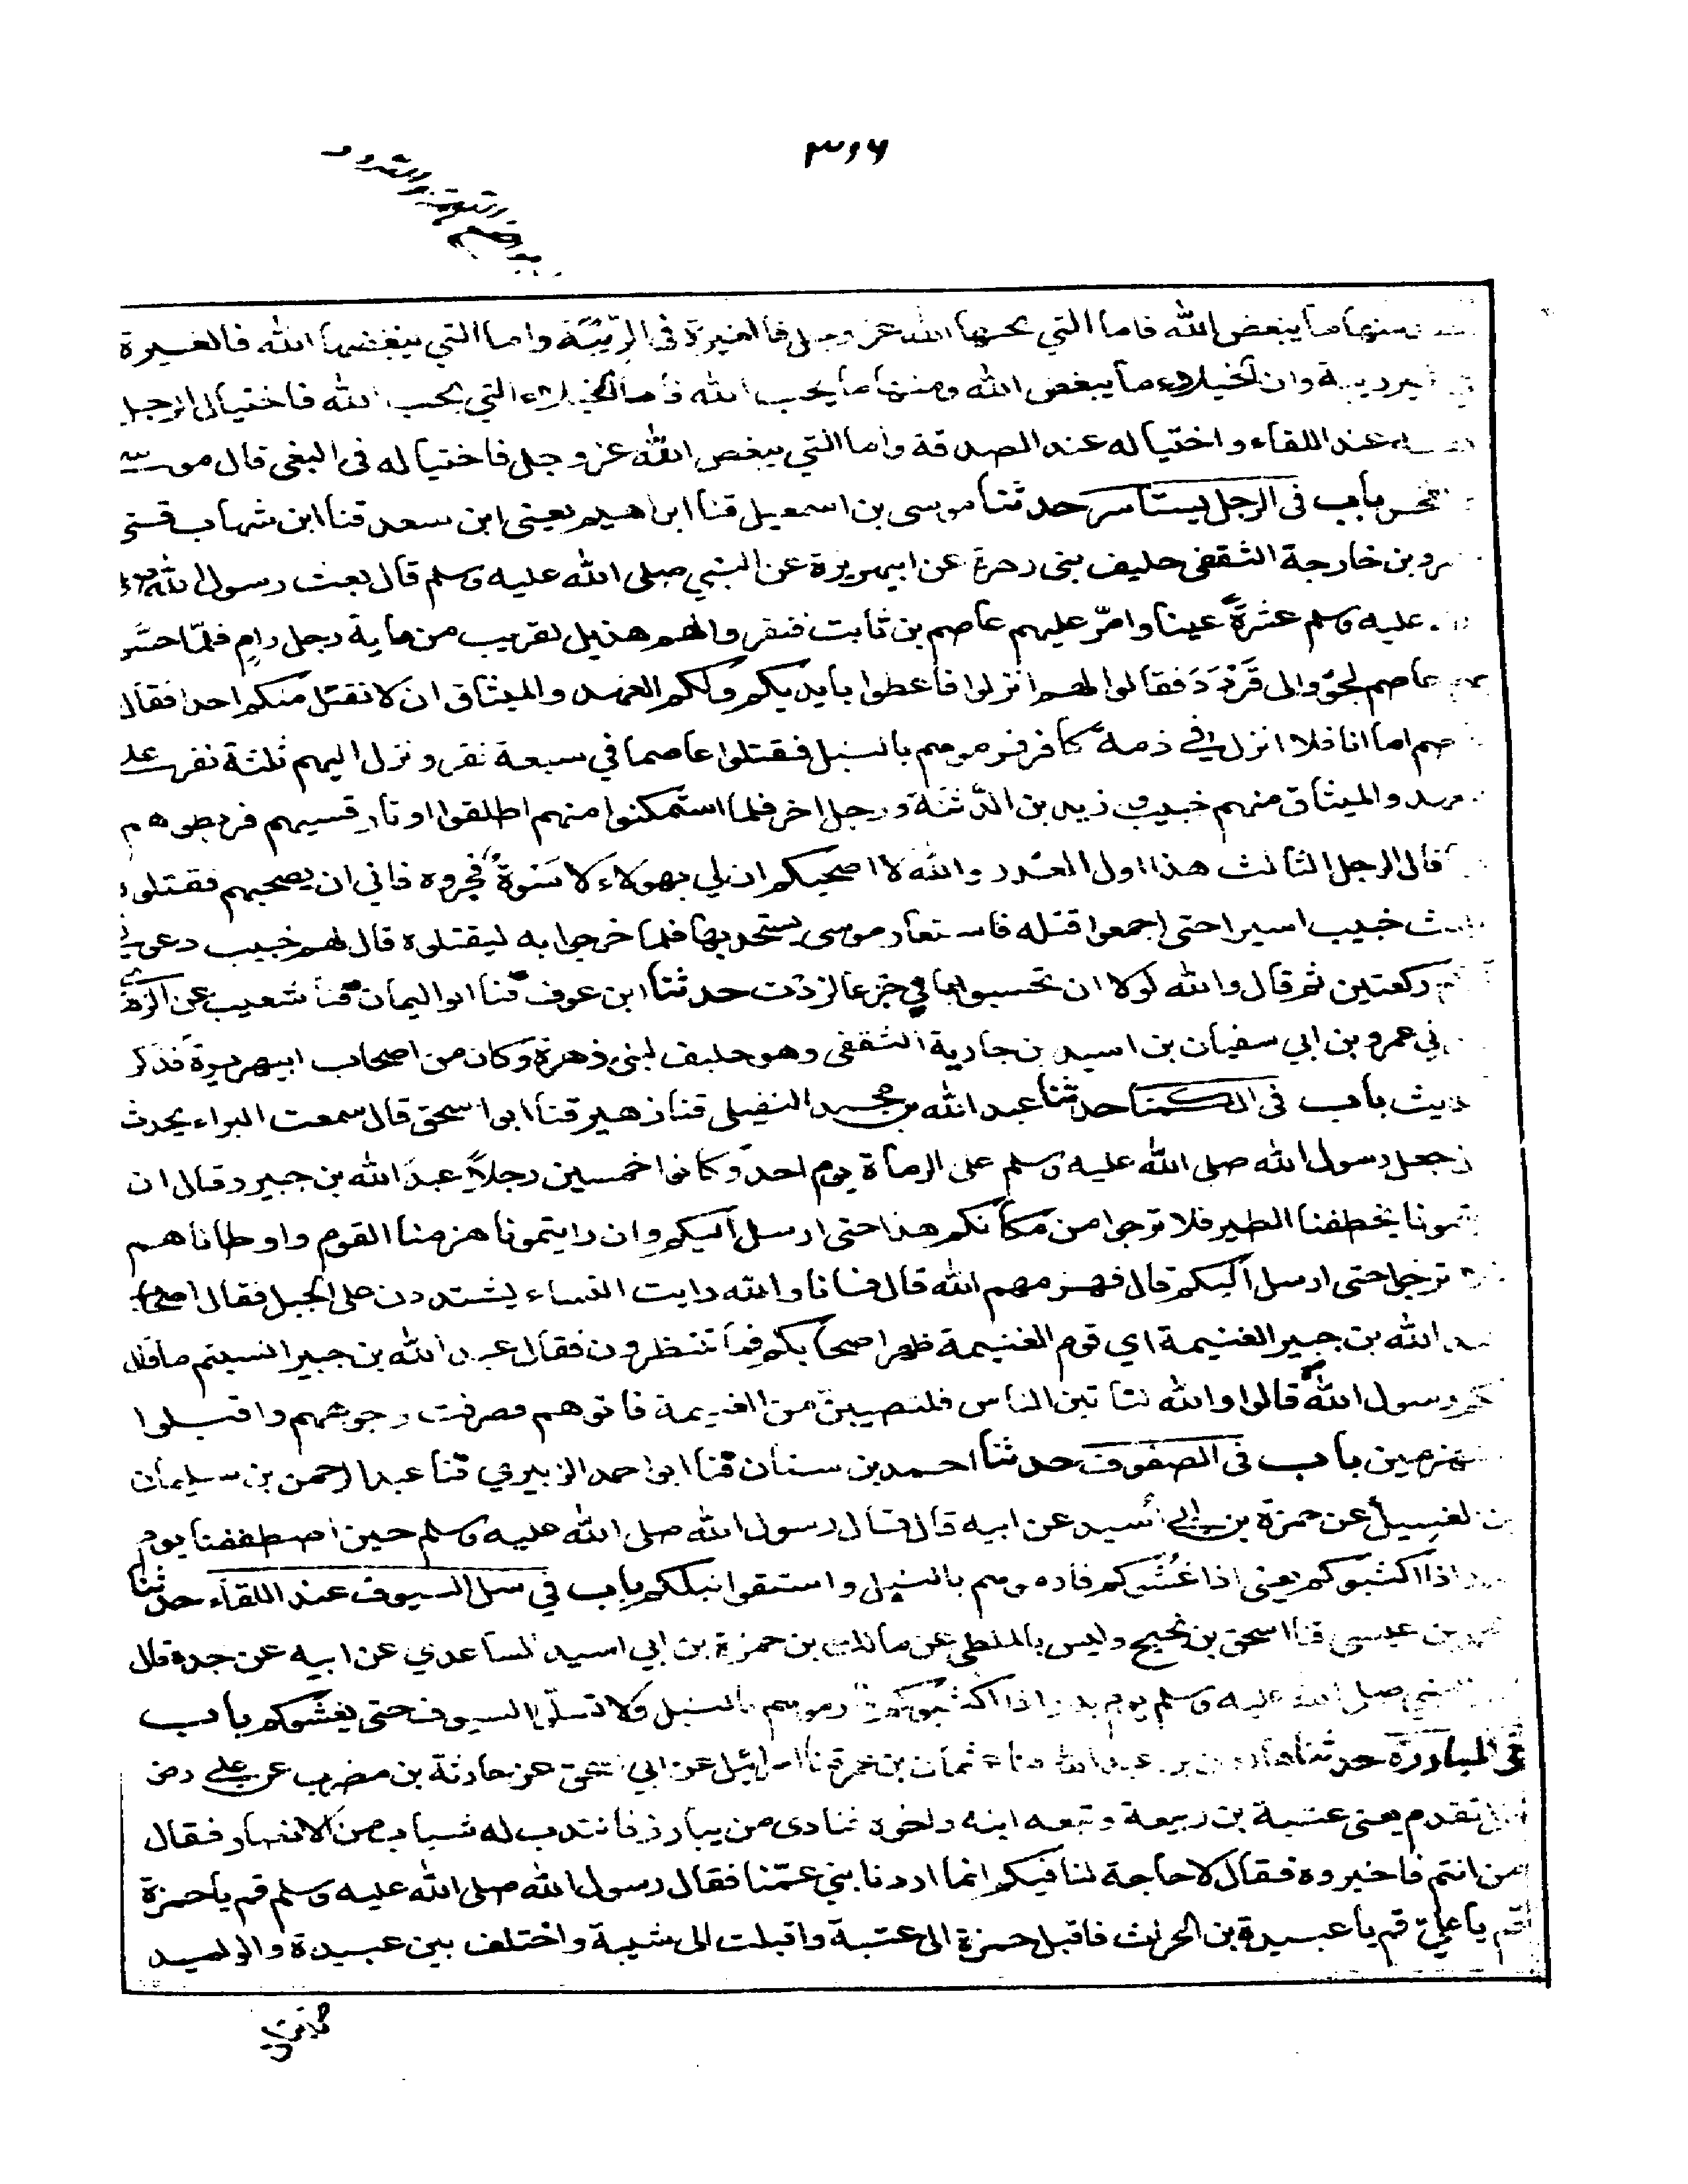 ٣٠٦
ومنها ما يبغض الله فاما التي يحبها الله عز وجل فالغيرة في الرِّيْبَة واما التي يبغضها الله فالغيرة
غير ريبة وان الخيلاء ما يبغض الله ومنها ما يحب الله فأما الخيلاء التي يحب الله فاختيال الرجل
عند اللقاء واختياله عند الصدقة واما التي يبغض الله عز وجل فاختياله في البغي قال موسى
باب في الرجل يستاسر حدثنا موسى بن اسمعيل قنا ابراهيم يعني ابن سعد قنا ابن شهاب
بن خارجة الثقفى حليف بنى زهرة عن ابيهريرة عن النبي صلى الله عليه وسلم قال بعث رسول الله
عليه وسلم عشرة عينا وامّر عليهم عاصم بن ثابت فنفروا لهم هذيل بقريب من ماية رجل رامٍ فلمّا احسّ
عاصم لجؤ والى قَرْدَدَ فقالوا لهم انزلوا فاعطوا بايديكم ولكم العهد والميثاق ان لا نقتل منكم احدا فقال
اما انا فلا انزل في ذمة كافر فرموهم بالنبل فقتلوا عاصما في سبعة نفر ونزل اليهم ثلثة نفر على
والميثاق منهم خبيب وزيد بن الدَّثنَة ورجل اخر فلما استمكنوا منهم اطلقوا اوتار قسيهم فربطوهم
قال الرجل الثالث هذا اول الغدر والله لا اصحبكم ان لي بهولاء لاسْوة فجروه فابى ان يصحبهم فقتلوه
خبيب اسيرا حتى اجمعوا قتله فاستعار موسى يستحد بها فلما خرجوا به ليقتلوه قال لهم خبيب دعوني
ركعتين ثم قال والله لولا ان تحسبوا ما في جزعا لزدت حدثنا ابن عوف قنا ابو اليمان قنا شعيب عن الزهري
عمرو بن ابي سفيان بن اسيد بن جارية الثقفى وهو حليف لبنى زهرة وكان من اصحاب ابيهريرة فذكر
باب في الكمنا حدثنا عبد الله بن محمد النفيلى قنا زهير قنا ابو اسحق قال سمعت البراء يحدث
جعل رسول الله صلى الله عليه وسلم على الرماة يوم احد وكانوا خمسين رجلاً عبدَ الله بن جبير وقال ان
تخطفنا الطير فلا تبرحوا من مكانكم هذا حتى ارسل اليكم وان رايتمونا هزمنا القوم واوطاناهم
تبرحوا حتى ارسل اليكم قال فهزمهم الله قال فانا والله رايت النساء يشتددن على الجبل فقال اصحاب
الله بن جبير الغنيمة اي قوم الغنيمة ظهر اصحابكم فما تنتظرون فقال عبد الله بن جبير انسيتم ما قال
لكم رسول الله قالوا والله لناتين الناس فلنصيبنّ من الغنيمة فاتوهم فصرفت وجوههم واقبلوا
منهزمين باب في الصفوف حدثنا احمد بن سنان قنا ابو احمد الزبيري قنا عبد الرحمن بن سليمان
بن الغسيل عن حمزة بن ابي أسيد عن ابيه قال قال رسول الله صلى الله عليه وسلم حين اصطففنا يوم
بدر اذا اكثبوكم يعني اذا غَشُوكم فارموهم بالنبل واستبقوا نبلكم باب في سل السيوف عند اللقاء حدثنا
محمد بن عيسى قنا اسحق بن نجيح وليس بالملطي عن مالك بن حمزة بن ابي اسيد الساعدي عن ابيه عن جده قال
النبي صلى الله عليه وسلم يوم بدر اذا اكثبوكم فارموهم بالنبل ولا تسلّوا السيوف حتى يغشوكم باب
في المبارزة حدثنا هارون بن عبد الله قنا عثمان بن عمر قنا اسرائيل عن ابي اسحق عن حارثة بن مضرب عن علي رض
تقدم يعني عتبة بن ربيعة وتبعه ابنه واخوه فنادى من يبارز فانتدب له شباب من الانصار فقال
من انتم فاخبروه فقال لا حاجة لنا فيكم انما اردنا بني عمّنا فقال رسول الله صلى الله عليه وسلم قم يا حمزة
قم يا عليّ قم يا عبيدة بن الحرث فاقبل حمزة الى عتبة واقبلت الى شيبة واختلف بين عبيدة والوليد